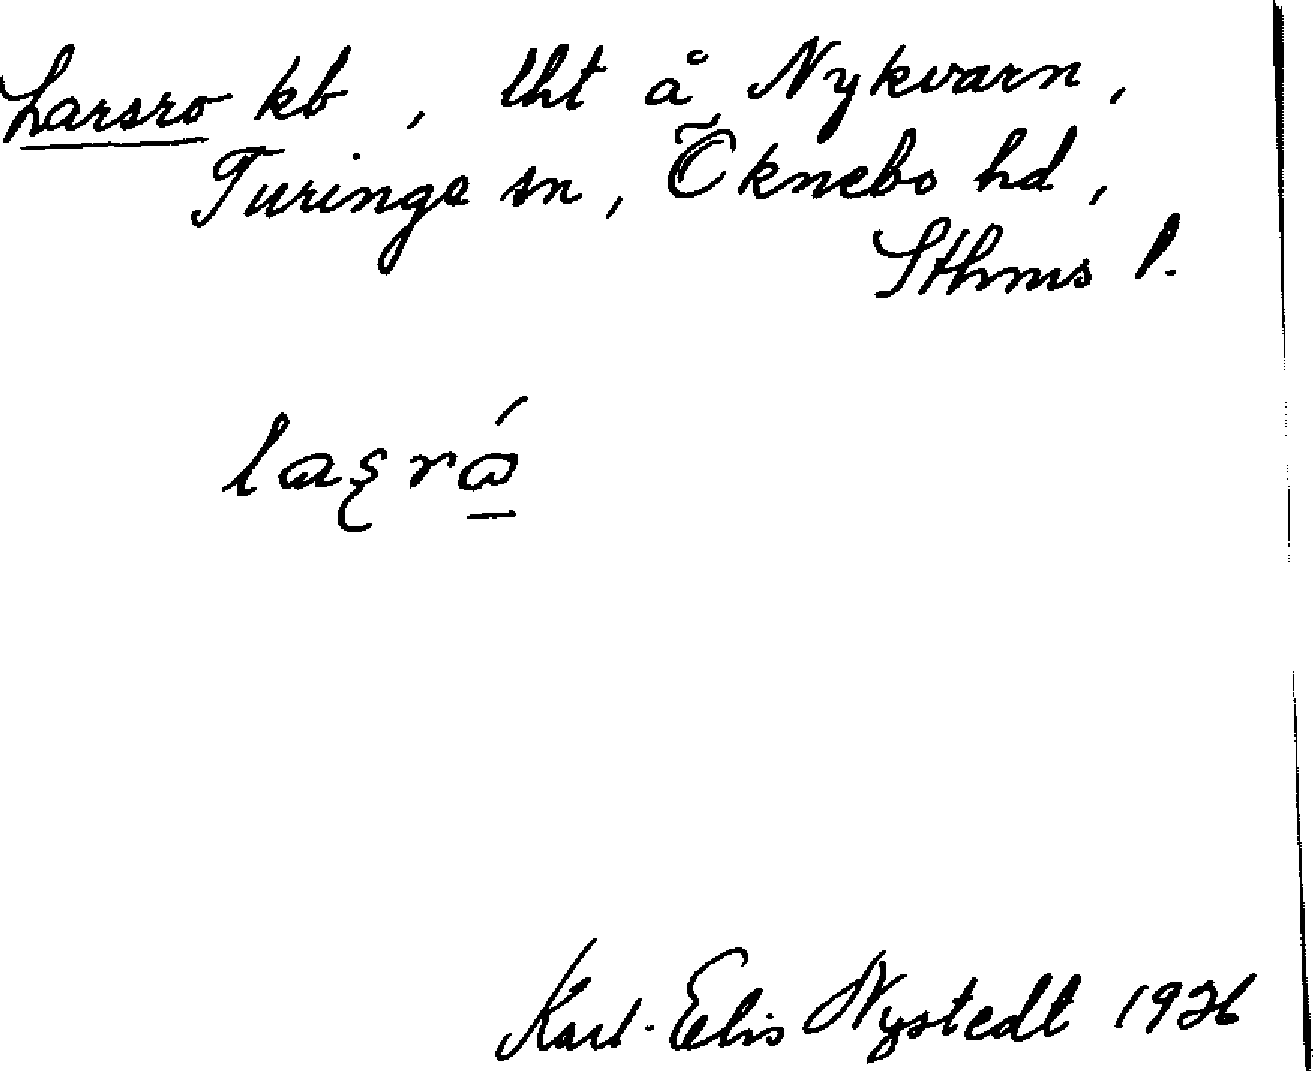 Larsro kb, lht å Nykvarn,
Turinge sn, Öknebo hd,
Sthms l.
Karl-Elis Nystedt 1936